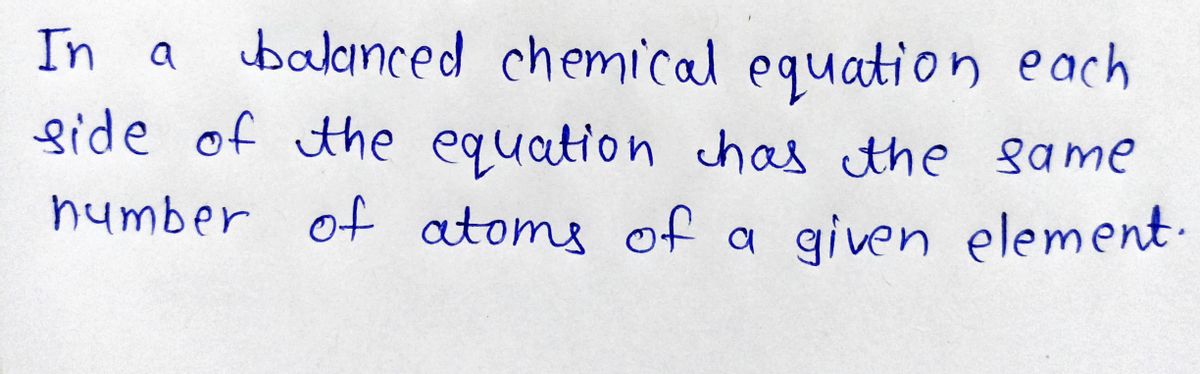 In a balanced chemical equation each
side of the equation has the same
number of atoms of a given element.